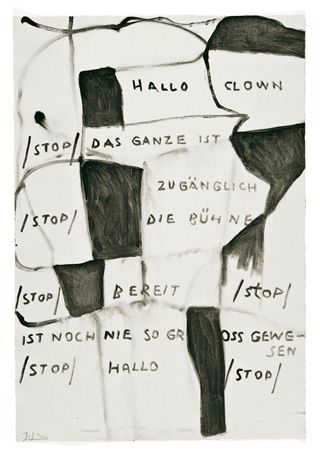 HALLO CLOWN
/STOP/ DAS GANZE IST
ZUGÄNGLICH
/STOP/ DIE BÜHNE
/STOP/ BEREIT /STOP/
IST NOCH NIE SO GROSS GEWE-
SEN
/STOP/ HALLO /STOP/